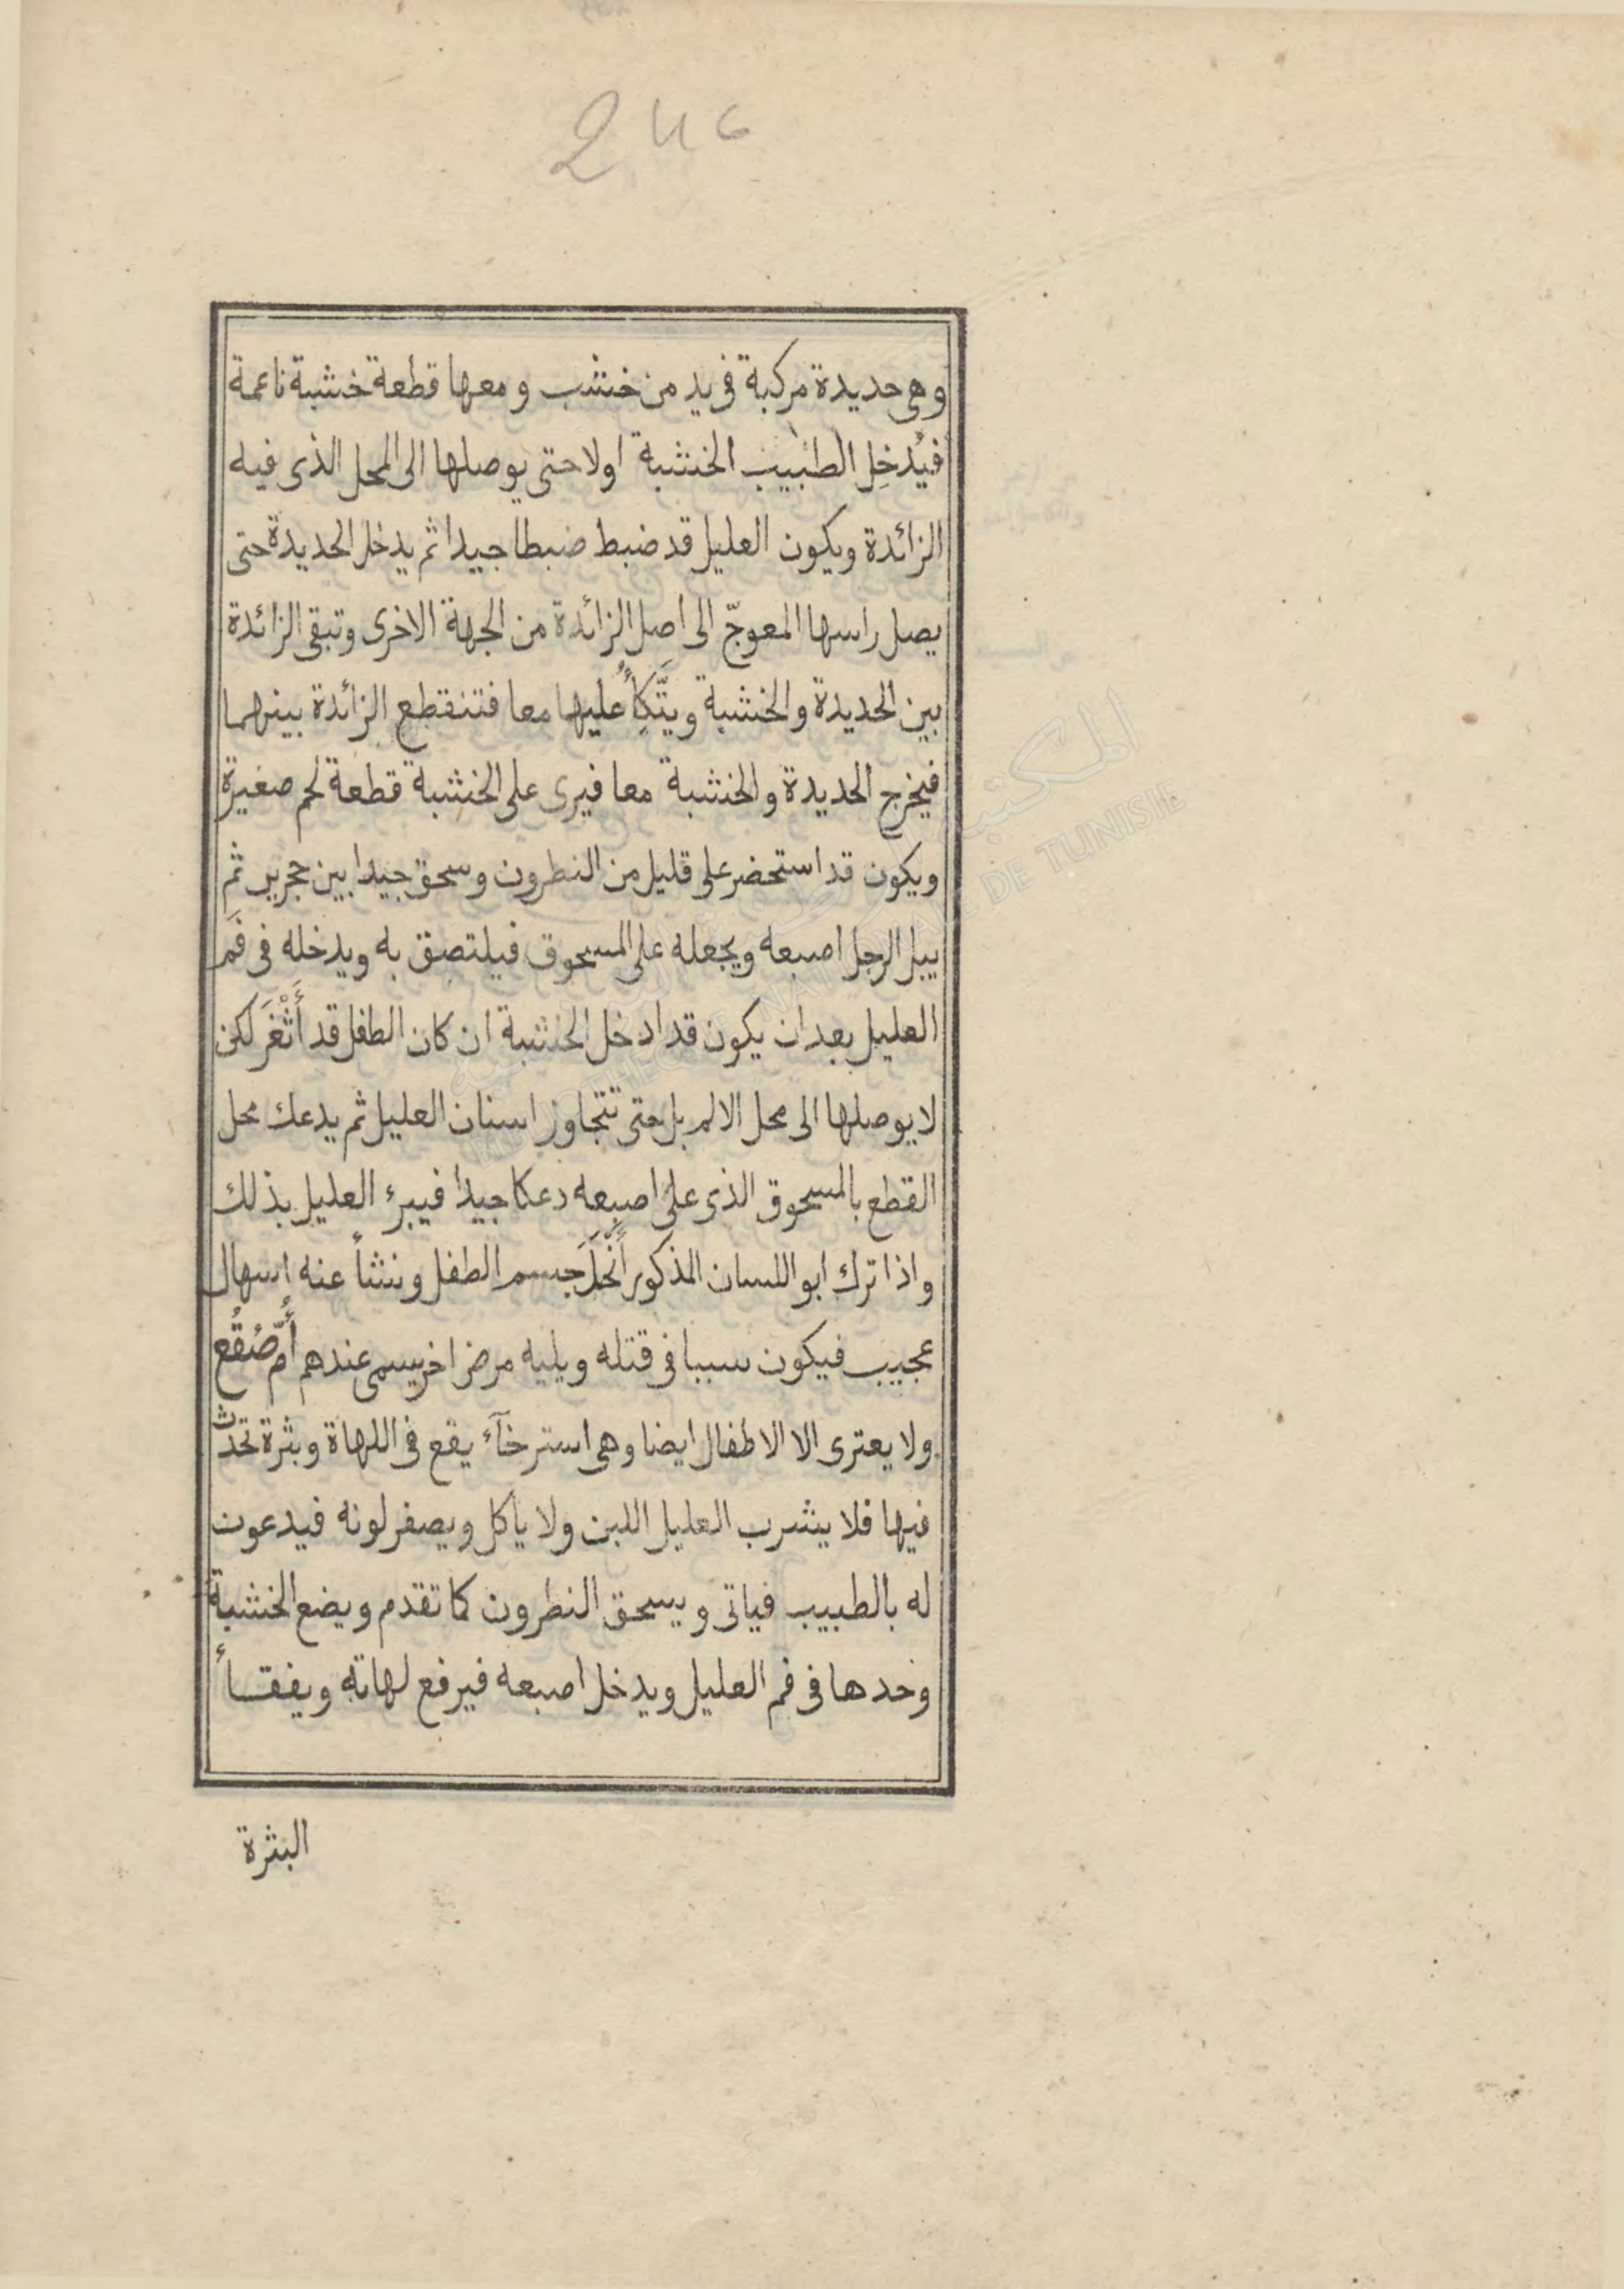 246
وهى حديدة مركبة فى يد من خشب ومعها قطعة خشبة ناعمة
فيُدخِل الطبيب الخشبة اولا حتى يوصلها الى المحل الذى فيه
الزائدة ويكون العليل قد ضبط ضبطا جيدا ثم يدخل الحديدة حتى
يصل راسها المعوجّ الى اصل الزائدة من الجهة الاخرى وتبقى الزائدة
بين الحديدة والخشبة ويَتَّكِأُ عليها معا فتنقطع الزائدة بينهما
فيخرج الحديدة والخشبة معا فيرى على الخشبة قطعة لحم صغيرة
ويكون قد استحضر على قليل من النطرون وسحق جيدا بين حجرين ثم
يبل الرجل اصبعه ويجعله على المسحوق فيلتصق به ويدخله فى فَم
العليل بعد ان يكون قد ادخل الخشبة ان كان الطفل قد أَثْغَرَ لكن
لا يوصلها الى محل الالم بل حتى تتجاوز اسنان العليل ثم يدعك محل
القطع بالمسحوق الذى على اصبعه دعكا جيدا فيبرء العليل بذلك
واذا ترك ابو اللسان المذكور أَنْحَلَ جسم الطفل ونشأ عنه إسهال
عجيب فيكون سببا فى قتله ويليه مرض اخر يسمى عندهم أُمّ صُقُع
ولا يعترى الا الاطفال ايضا وهى استرخآء يقع فى اللهاة وبثرة تحدث
فيها فلا يشرب العليل اللبن ولا ياكل ويصفر لونه فيدعون
له بالطبيب فياتى ويسحق النطرون كما تقدم ويضع الخشبة
وحدها فى فم العليل ويدخل اصبعه فيرفع لهاته ويفقأ
البثرة
DE TUNISIE